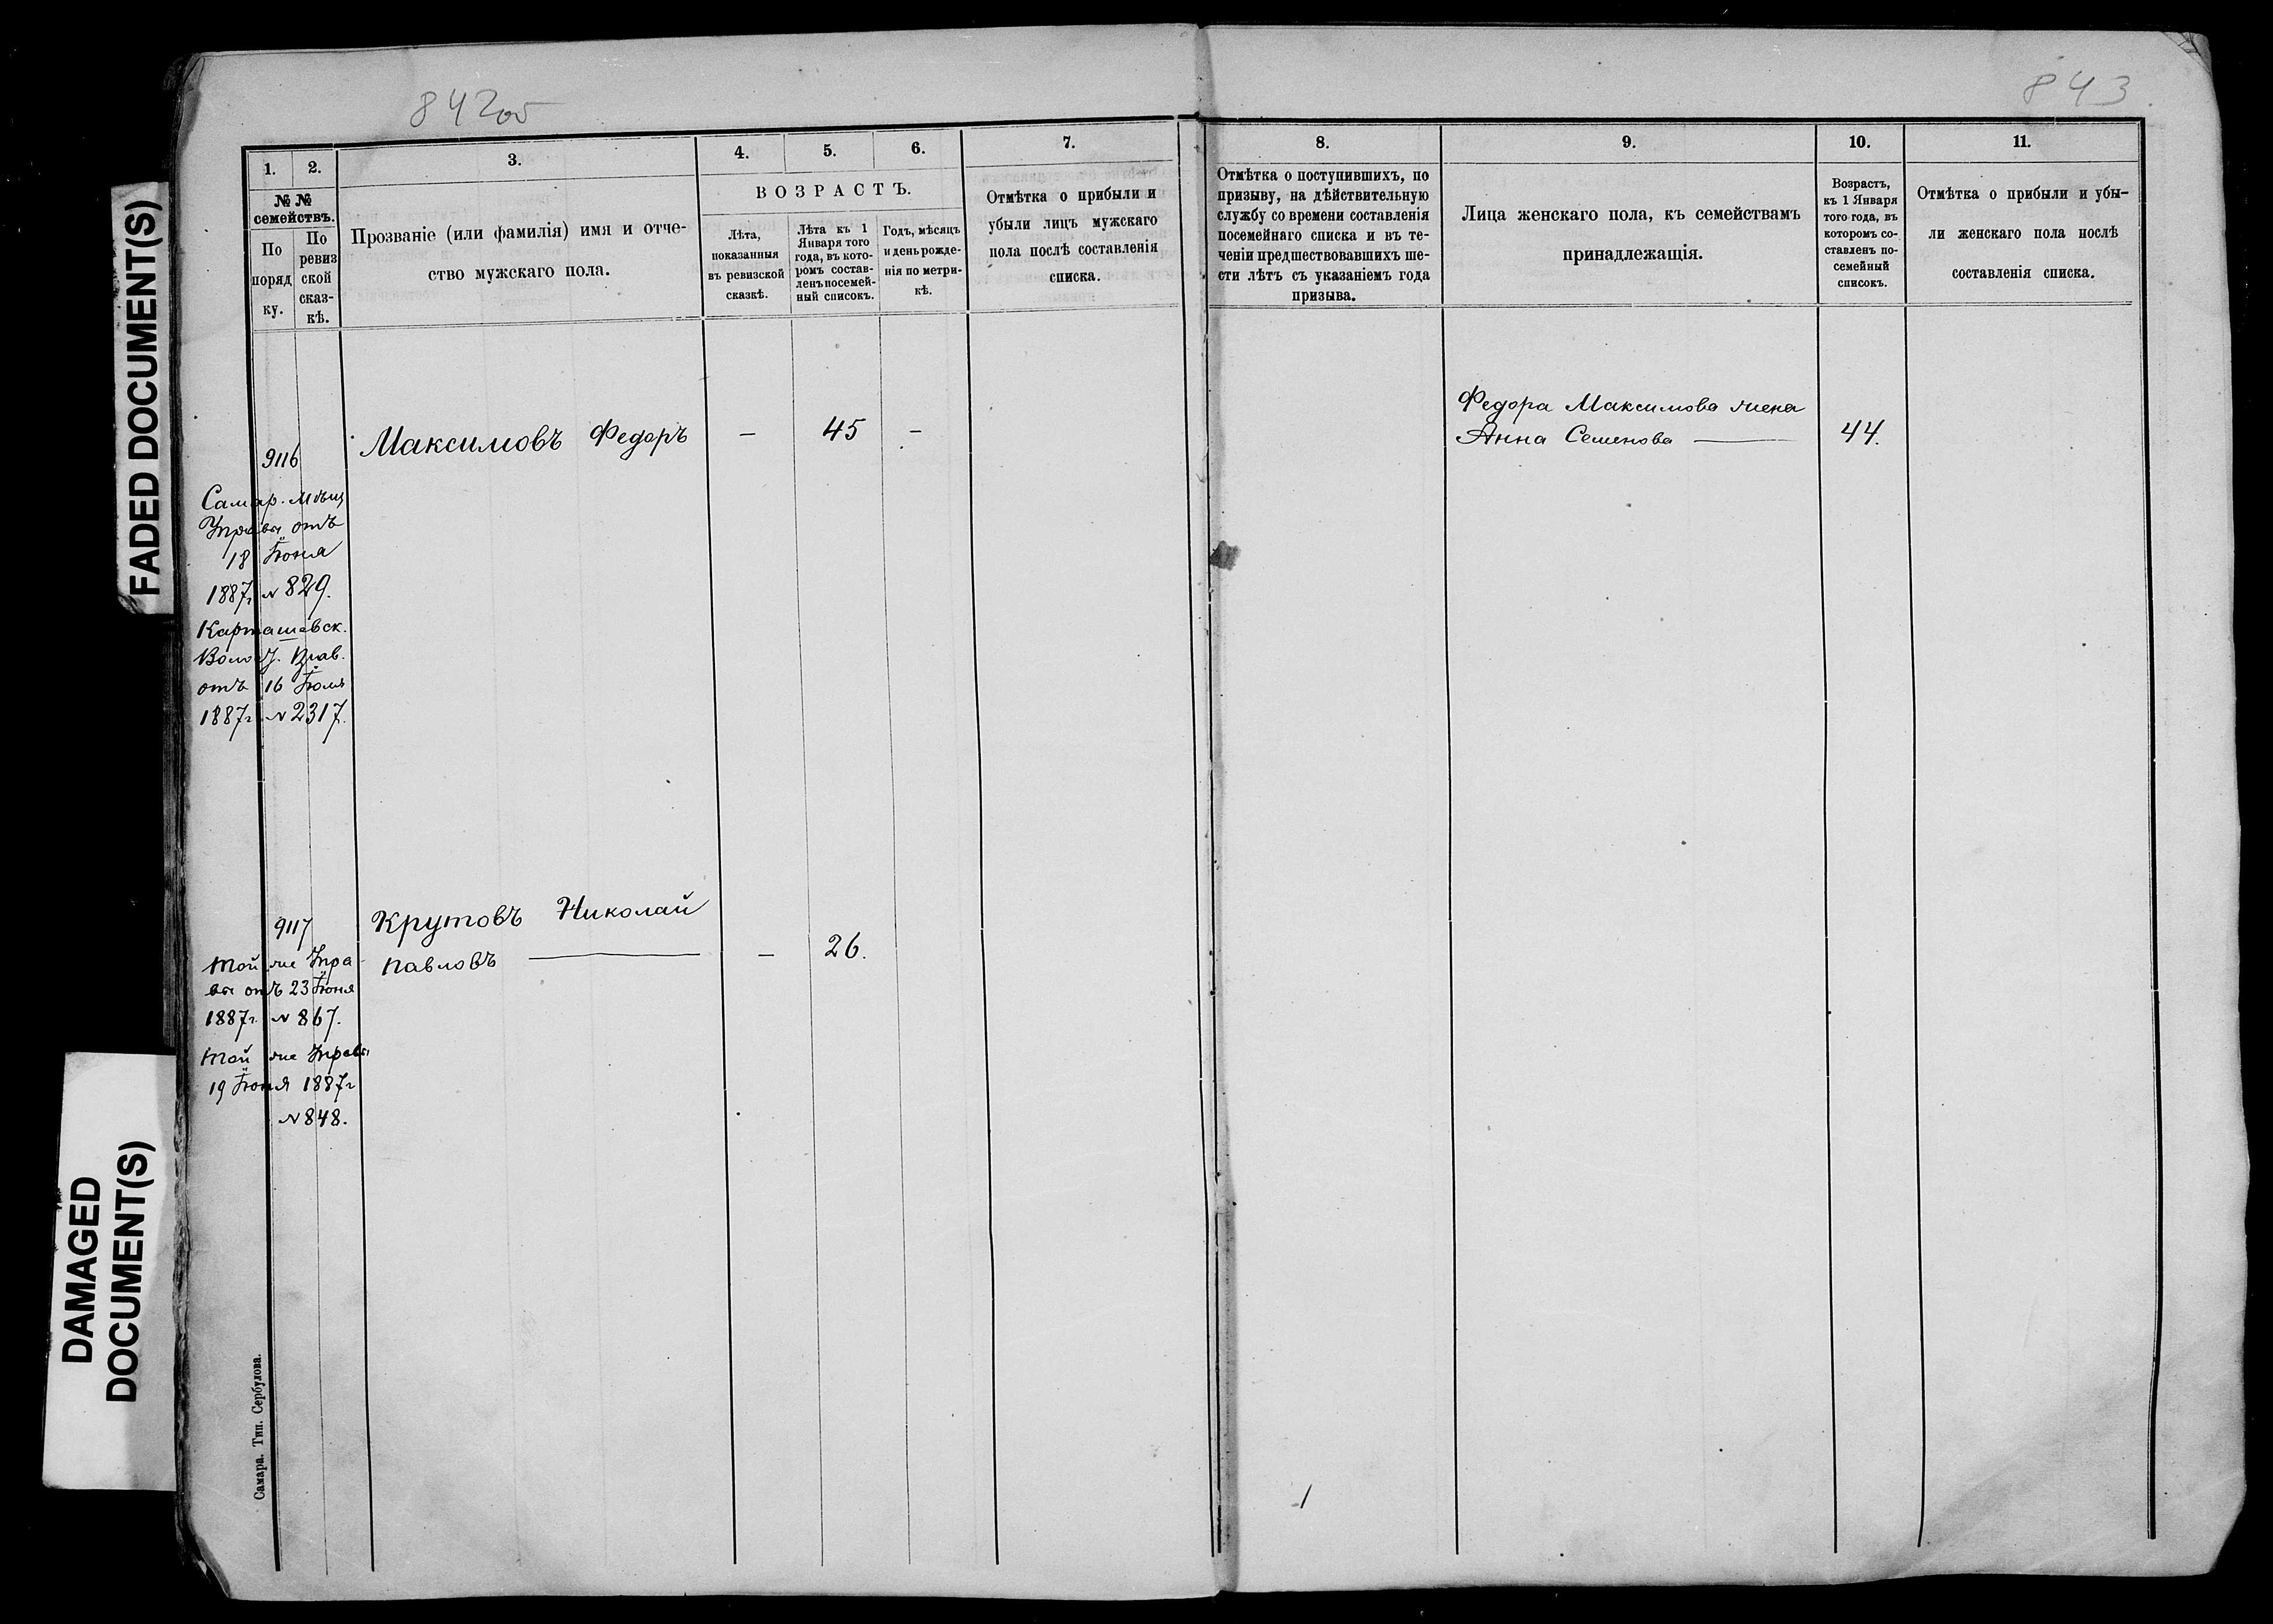 842 об
843
FADED DOCUMENT(S)
DAMAGED
DOCUMENT(S)
1.
2.
3.
4.
5.
6.
7.
№ №
семействъ.
По
поряд
ку.
По
ревиз
ской
сказ-
кѣ.
Прозваніе (или фамилія) имя и отче-
ство мужскаго пола.
ВОЗРАСТЪ.
Лѣта,
показанныя
въ ревизской
сказкѣ.
Лѣта къ 1
Января того
года, въ кото-
ромъ состав-
ленъ посемей-
ный списокъ.
Годъ, мѣсяцъ
и день рожде-
нія по метри-
кѣ.
Отмѣтка о прибыли и
убыли лицъ мужскаго
пола послѣ составленія
списка.
8.
9.
10.
11.
Отмѣтка о поступившихъ, по
призыву, на дѣйствительную
службу со времени составленія
посемейнаго списка и въ те-
ченіи предшествовавшихъ ше-
сти лѣтъ съ указаніемъ года
призыва.
Лица женскаго пола, къ семействамъ
принадлежащія.
Возрастъ,
къ 1 Января
того года, въ
которомъ со-
ставленъ по-
семейный
списокъ.
Отмѣтка о прибыли и убы-
ли женскаго пола послѣ
составленія списка.
9116
Максимовъ Федоръ — 45 —
Федора Максимова жена
Анна Семенова 44.
Самар. Мѣщ
Управы отъ
18 Іюня
1887г № 829.
Карташевск.
Волос. Прав.
отъ 16 Іюля
1887г № 2317.
9117
Крутовъ Николай
Павловъ — 26.
Той же Упра-
вы отъ 23 Іюня
1887г № 867.
Той же Управы
19 Іюня 1887г
№ 848.
Самара. Тип. Сербулова.